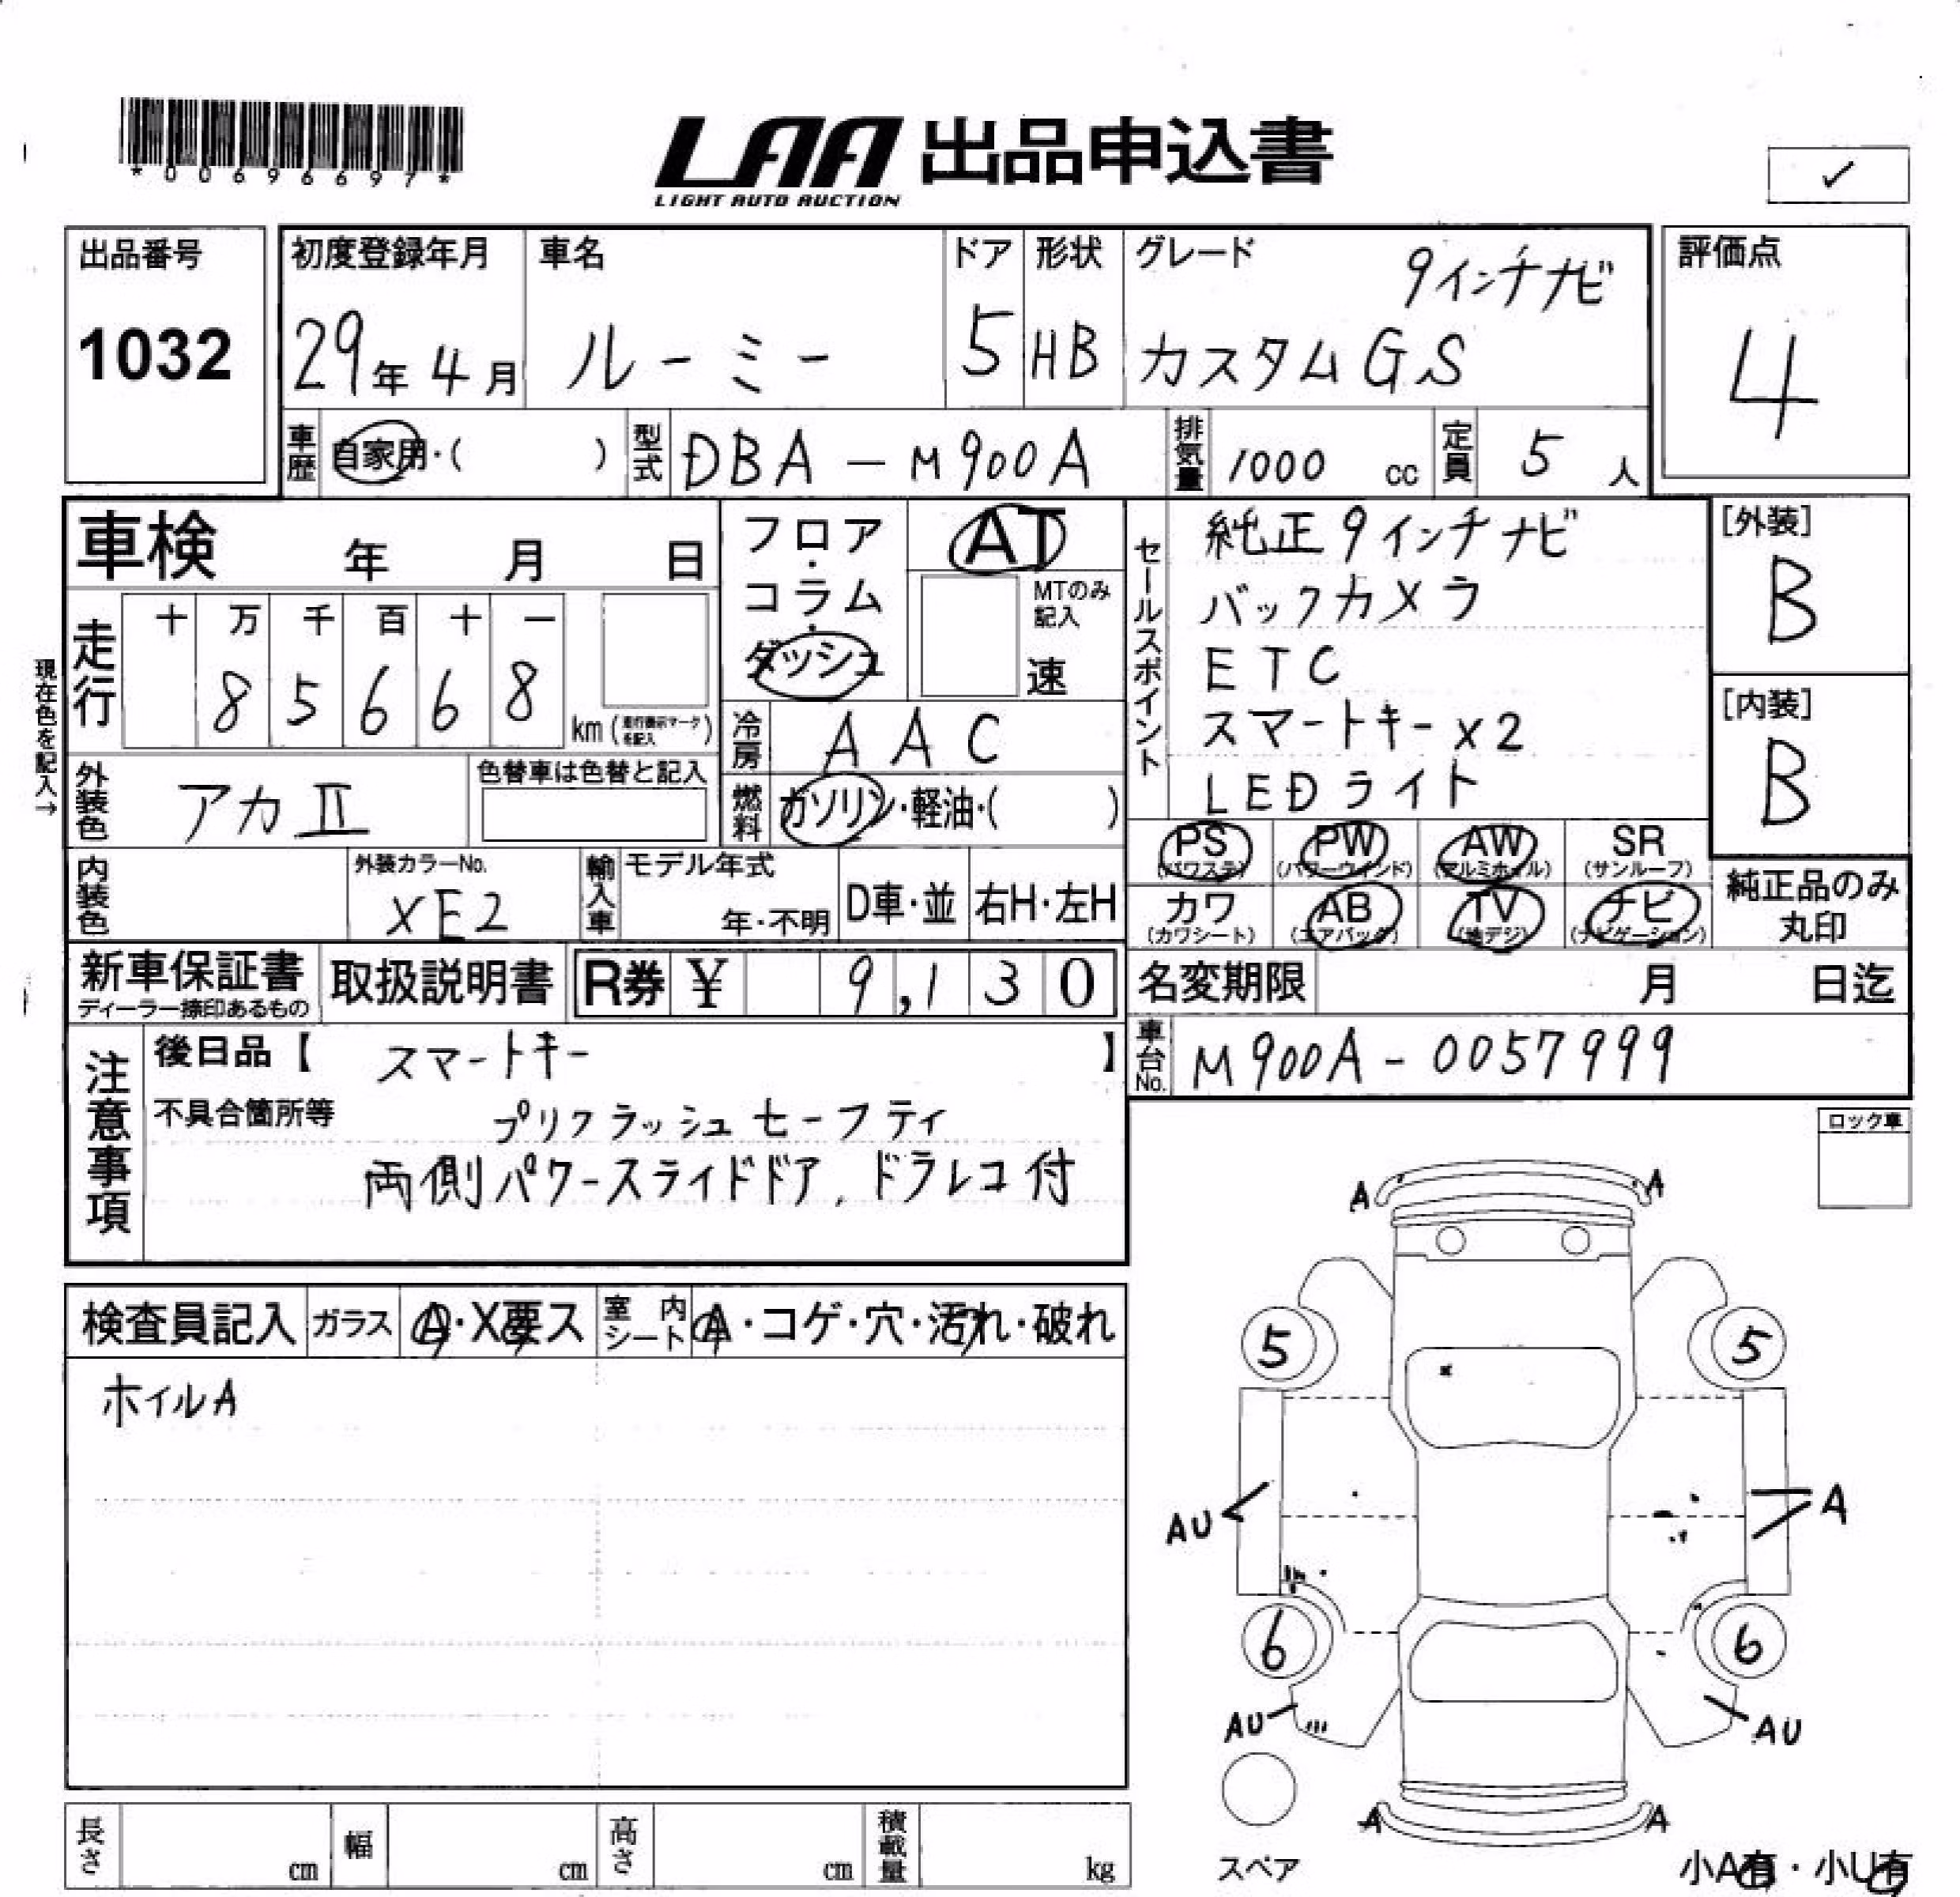 *00696697*
LAA 出品申込書
LIGHT AUTO AUCTION
✓
出品番号
1032
初度登録年月
29年 4月
車名
ルーミー
ドア
5
形状
HB
グレード
9インチナビ
カスタムGS
評価点
4
車歴
自家用・( )
型式
DBA-M900A
排気量
1000 cc
定員
5 人
車検 年 月 日
フロア・コラム・ダッシュ
AT
MTのみ記入
速
セールスポイント
純正9インチナビ
バックカメラ
ETC
スマートキーx2
LEDライト
[外装]
B
[内装]
B
現在色を記入→
走行
十 万 千 百 十 一
8 5 6 6 8
km (走行表示マークを記入)
冷房
AAC
外装色
アカⅡ
色替車は色替と記入
燃料
ガソリン・軽油・( )
PS (パワステ)
PW (パワーウインド)
AW (アルミホイル)
SR (サンルーフ)
カワ (カワシート)
AB (エアバック)
TV (地デジ)
ナビ (ナビゲーション)
純正品のみ丸印
内装色
外装カラーNo.
XE2
輸入車
モデル年式
年・不明
D車・並
右H・左H
新車保証書
ディーラー捺印あるもの
取扱説明書
R券 ¥ 9,130
名変期限 月 日迄
車台No.
M900A-0057999
注意事項
後日品【 スマートキー 】
不具合箇所等
プリクラッシュセーフティ
両側パワースライドドア、ドラレコ付
ロック車
検査員記入
ガラス
A・X要ス
室内シート
A・コゲ・穴・汚れ・破れ
ホイルA
A A
5 5
AU A
6 6
AU AU
A A
スペア
小A有・小U有
長さ cm
幅 cm
高さ cm
積載量 kg